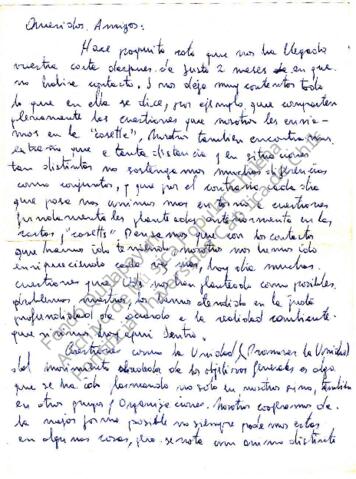 Queridos Amigos:
Hace poquito rato que nos ha llegado
vuestra carta despues de justo 2 meses de en que
no hubiese contacto, y nos dejo muy contentos todo
lo que en ella se dice, por ejemplo que comparten
plenamente las cuestiones que nosotros les envia-
mos en la "casette". Nosotros tambien encontramos
extraño que a tanta distancia y en situaciones
tan distintas no sostengamos muchas diferencias
como conjuntos, y que por el contrario cada dia
que pasa nos unimos mas en torno a cuestiones
fundamentales planteadas anteriormente en las
cartas, "casette". Pensamos que con los contactos
que hemos ido teniendo, nosotros nos hemos ido
enriqueciendo cada vez mas, hoy dia muchas
cuestiones que Uds nos han planteado como posibles
problemas nuestros, los hemos atendido en la justa
profundidad de acuerdo a la realidad cambiante
que vivimos hoy aqui dentro.
Cuestiones como la Unidad, (Promover la Unidad)
del movimiento alrededor de los objetivos generales es algo
que se ha ido formando no solo en nosotros sino, tambien
en otros grupos y Organizaciones. Nosotros cooperamos de
la mejor forma posible no siempre podemos estar
en algunas cosas, pero se nota un animo distinto